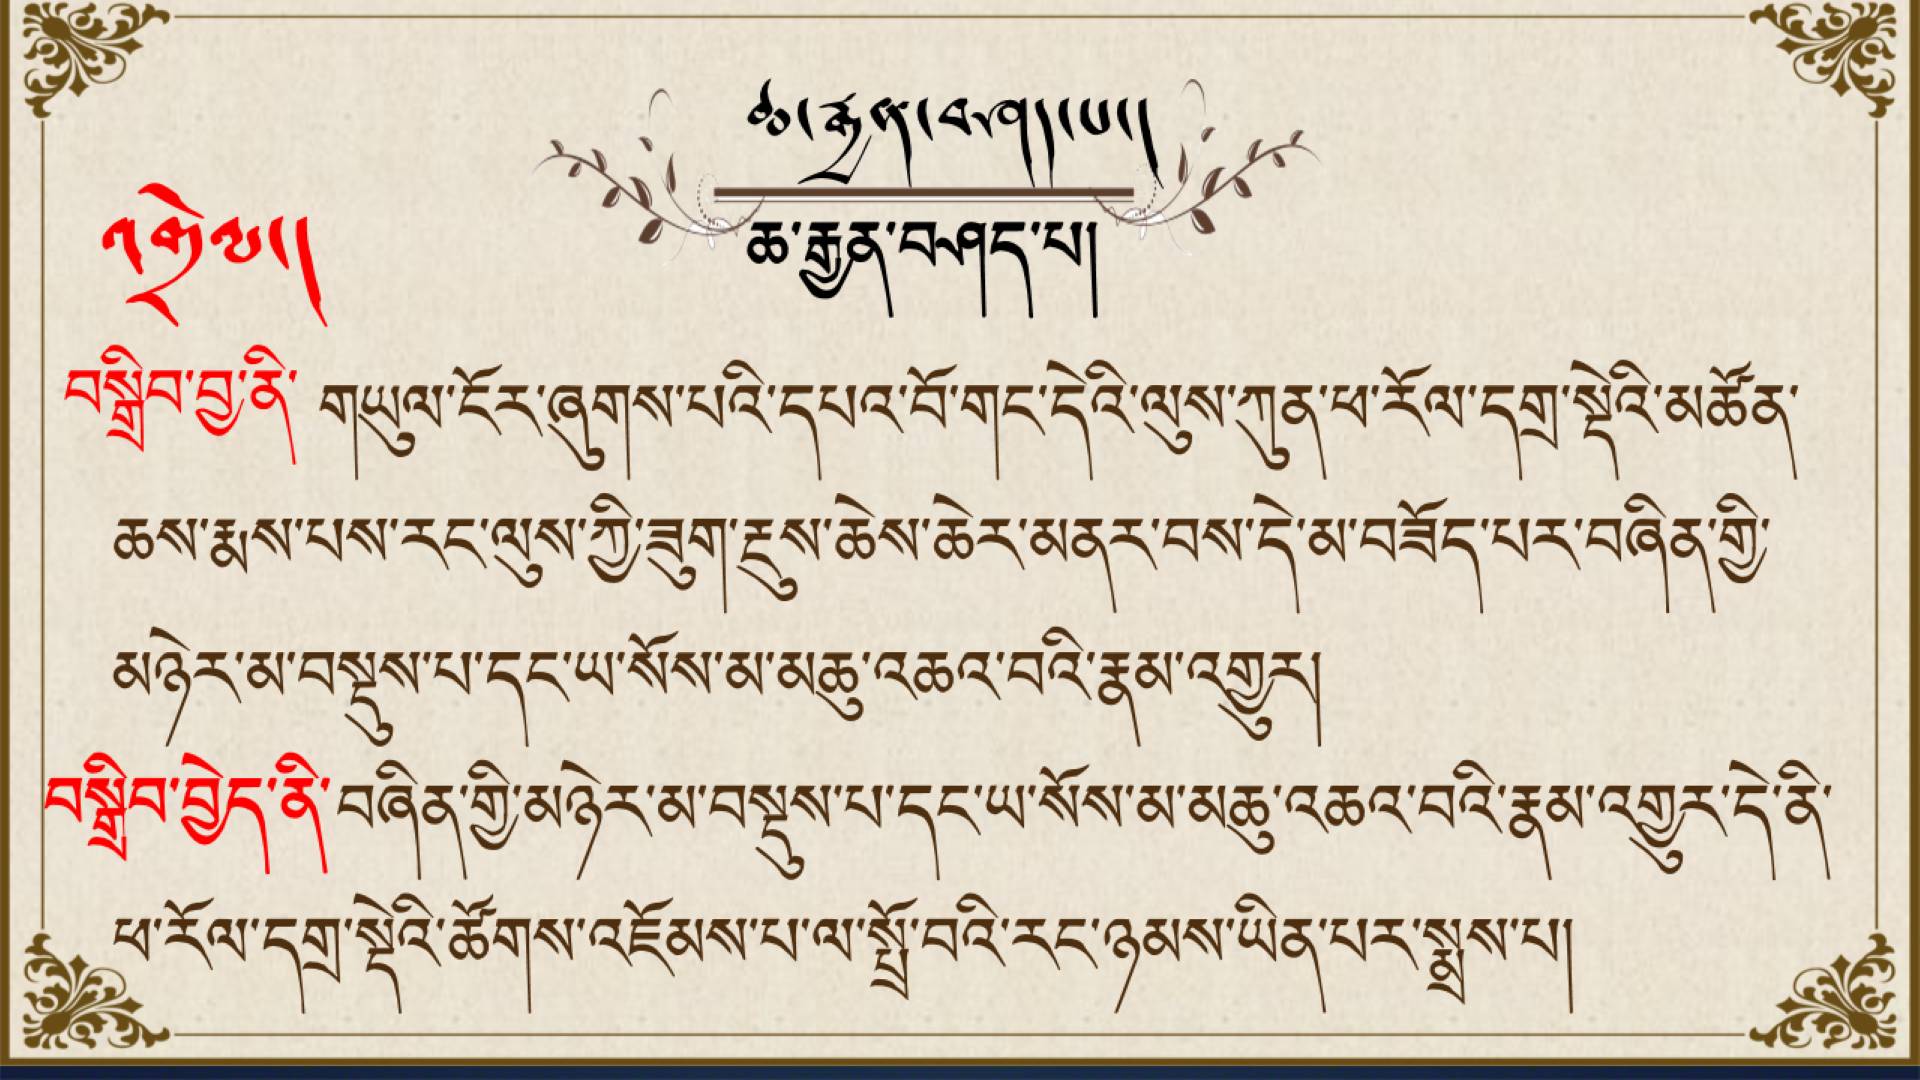 ཆ་རྒྱན་བཤད་པ།།
ཆ་རྒྱན་བཤད་པ།
འགྲེལ་པ།
བསྒྲིབ་བྱ་ནི་ གཡུལ་ངོར་ཞུགས་པའི་དཔའ་བོ་གང་དེའི་ལུས་ཀུན་ཕ་རོལ་དགྲ་སྡེའི་མཚོན་
ཆས་རྨས་པས་རང་ལུས་ཀྱི་ཟུག་རྔུས་ཆེས་ཆེར་མནར་བས་དེ་མ་བཟོད་པར་བཞིན་གྱི་
མཉེར་མ་བསྡུས་པ་དང་ཡ་སོས་མ་མཆུ་འཆའ་བའི་རྣམ་འགྱུར།
བསྒྲིབ་བྱེད་ནི་བཞིན་གྱི་མཉེར་མ་བསྡུས་པ་དང་ཡ་སོས་མ་མཆུ་འཆའ་བའི་རྣམ་འགྱུར་དེ་ནི་
ཕ་རོལ་དགྲ་སྡེའི་ཚོགས་འཇོམས་པ་ལ་སྤྲོ་བའི་རང་ཉམས་ཡིན་པར་སྨྲས་པ།